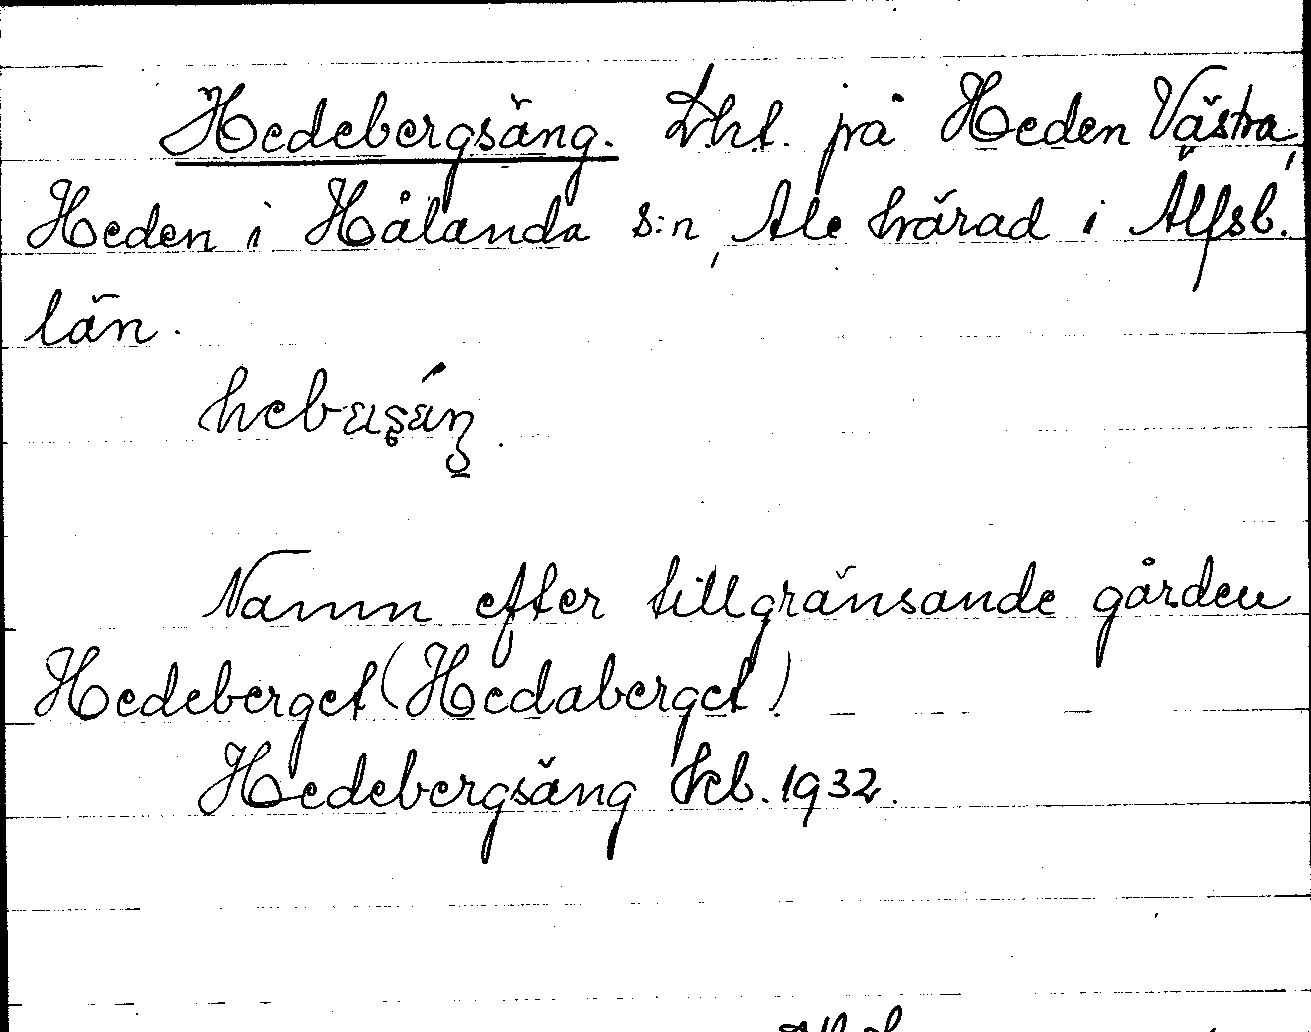 Hedebergsäng. Lht. på Heden Västra,
Heden i Hålanda s:n, Ale härad i Älfsb.
län.
Namn efter tillgränsande gården
Hedeberget (Hedaberget)
Hedebergsäng Jeb. 1932.